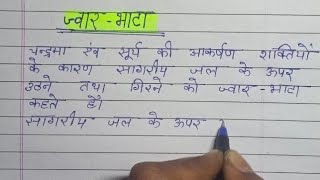 ज्वार-भाटा
चन्द्रमा एंव सूर्य की आकर्षण शक्तियों
के कारण सागरीय जल के ऊपर
उठने तथा गिरने को ज्वार-भाटा
कहते हैं।
सागरीय जल के ऊपर